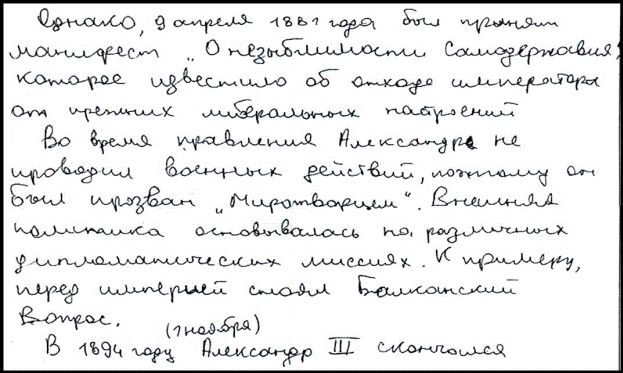 Однако, 9 апреля 1881 года был принят
манифест „О незыблимости самодержавия",
которое известило об отходе императора
от прежних либеральных настроений
Во время правления Александре не
проводил военных действий, поэтому он
был прозван „Миротворцем". Внешняя
политика основывалась на различных
дипломатических миссиях. К примеру,
перед империей стоял Балканский
Вопрос.
(1 ноября)
В 1894 году Александр III скончался